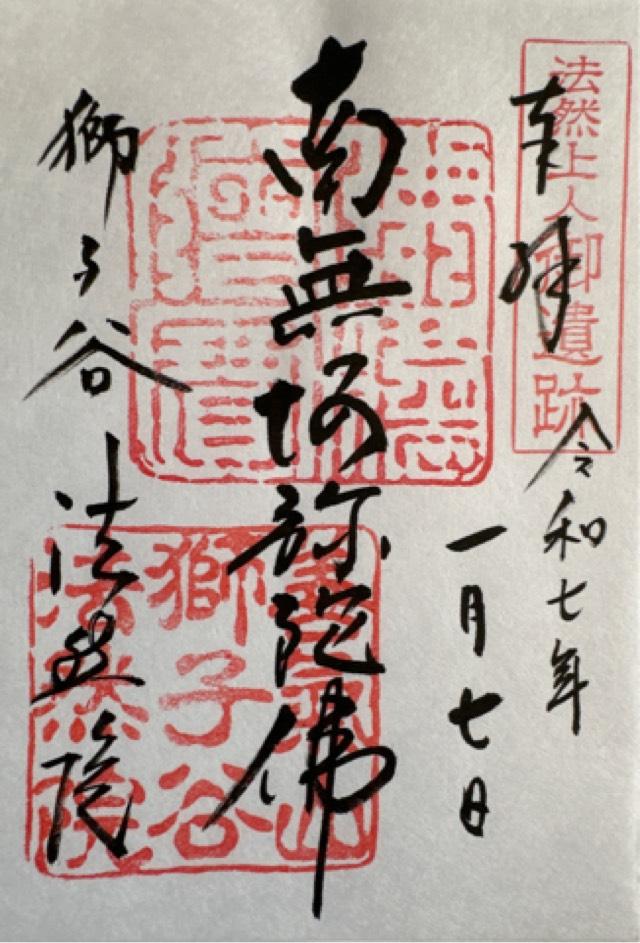 法然上人御遺跡
奉拝
令和七年
一月七日
南無阿弥陀佛
獅子谷 法然院
獅子谷
法然院